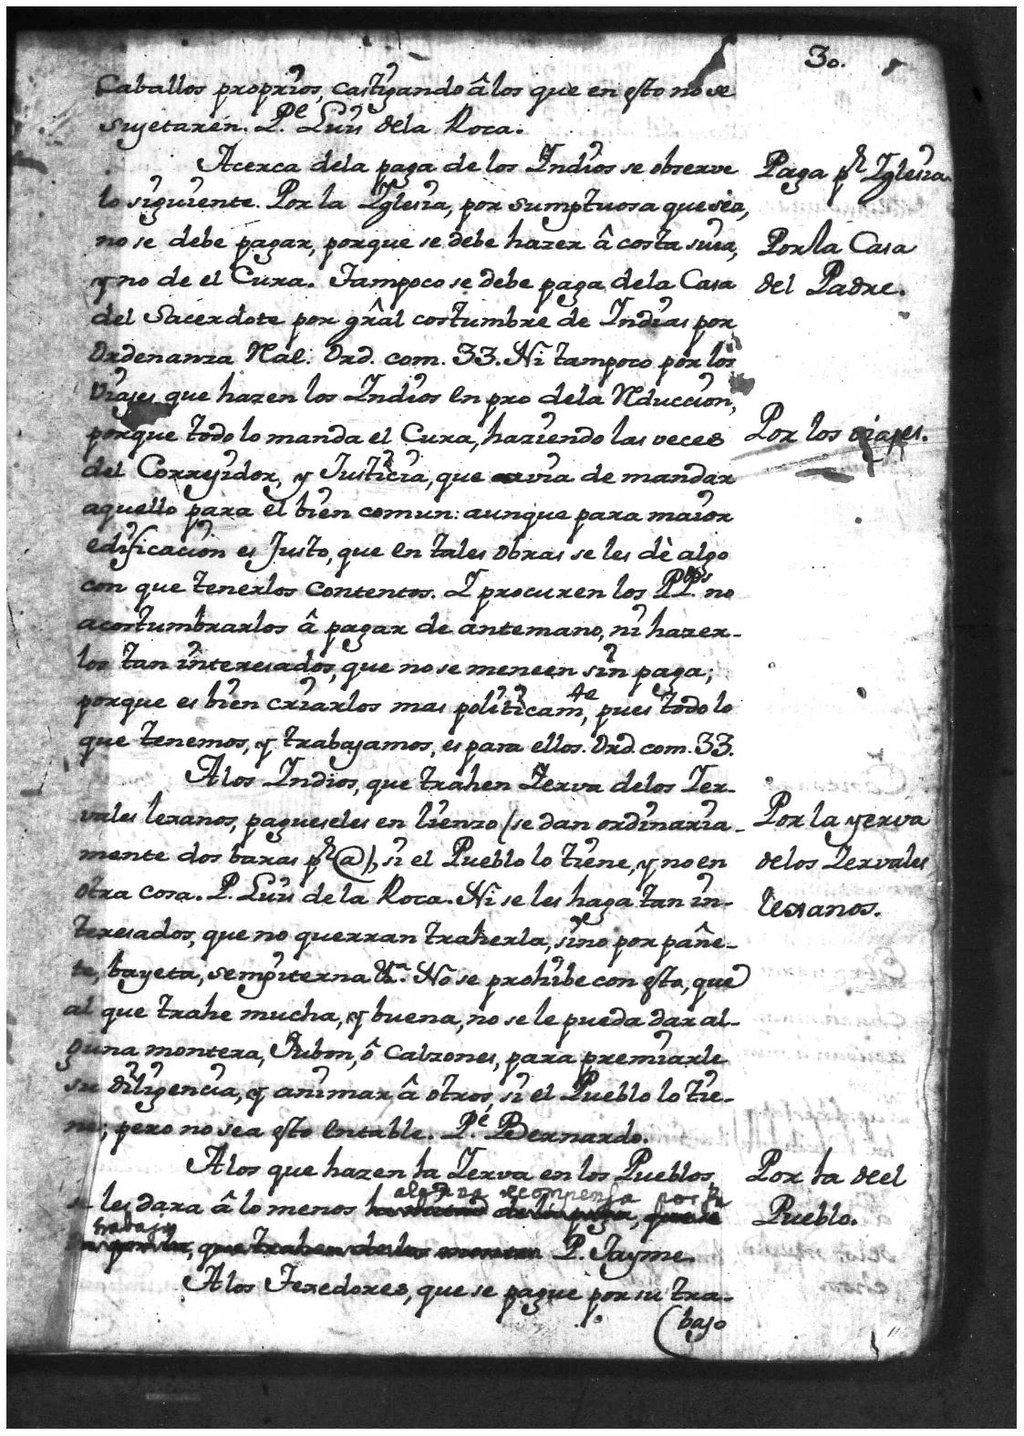 30.
Caballos proprios, castigando â los que en esto no se
sujetaren. P.e Luis dela Roca.
Acerca dela paga de los Indios se observe
Paga pr Iglesia.
lo siguiente. Por la Yglesia, por sumptuosa que sea,
no se debe pagar, porque se debe hazer â costa suia,
Por la Casa
y no de el Cura. Tampoco se debe paga dela Casa
del Padre.
del Sacerdote por grâl costumbre de Indias por
Ordenanza Rael. Ord. com. 33. Ni tampoco por los
Viajes que hazen los Indios en pro dela Rduccion,
porque todo lo manda el Cura, haziendo las veces
Por los viajes.
del Corregidor, y Justicia, que avia de mandar
aquello para el bien comun: aunque para maior
edificacion es Justo, que en tales obras se les dè algo
con que tenerlos contentos. Y procuren los PP.es no
acostumbrarlos â pagar de antemano, ni hazer-
los tan interesados, que no se meneen sin paga;
porque es bien criarlos mas politicam.te, pues todo lo
que tenemos, y trabajamos, es para ellos. Ord. com. 33.
A los Indios, que trahen Yerva delos Yer-
vales lexanos, pagueseles en lienzo (se dan ordinaria-
Por la yerva
mente dos baras pr @), si el Pueblo lo tiene, y no en
delos Yervales
otra cosa. P. Luis de la Roca. Ni se les haga tan in-
lexanos.
teresados, que no querran traherla, sino por pañe-
te, bayeta, sempiterna &a. No se prohibe con esto, que
al que trahe mucha, y buena, no se le pueda dar al-
guna montera, Jubon, ô Calzones, para premiarle
su diligencia, y animar â otros, si el Pueblo lo tie-
ne; pero no sea esto entable. P.e Bernardo.
A los que hazen la Yerva en los Pueblos,
Por la de el
alguna recompensa por su
se les dara â lo menos la mitad de la paga, que se
Pueblo.
trabajo
que trahen de los montes. P. Jayme.
A los Texedores, que se pague por su tra-
bajo